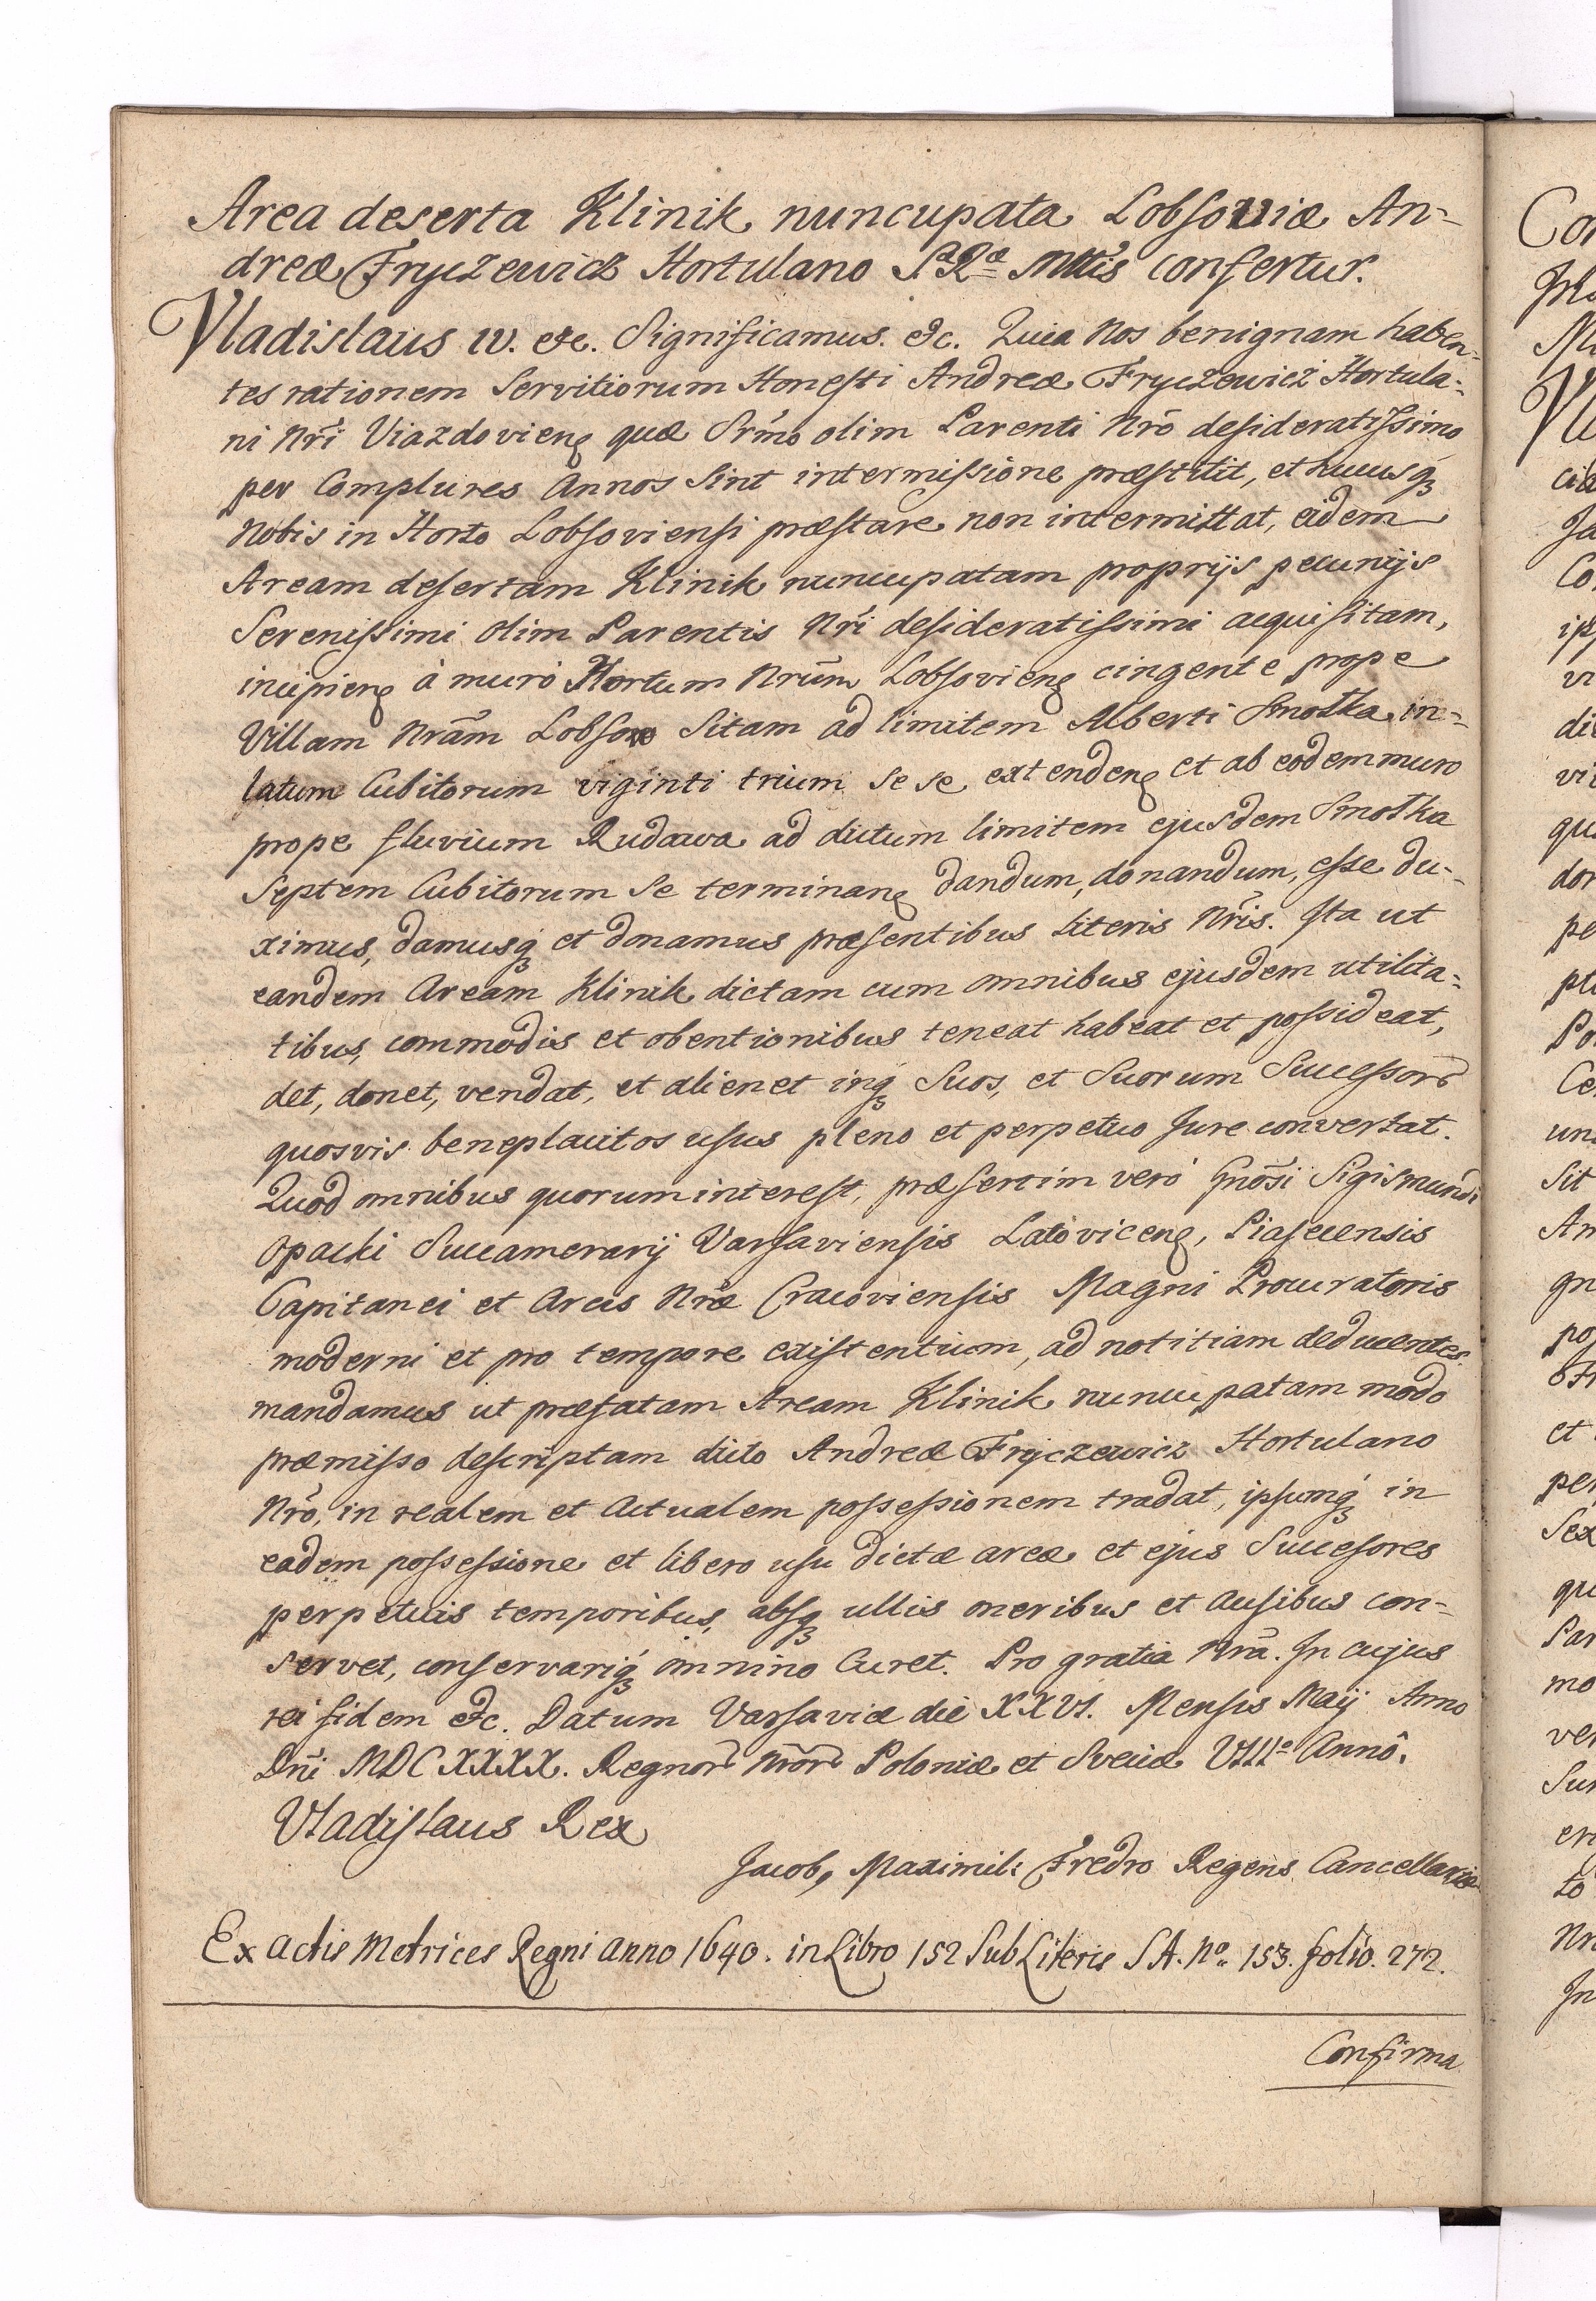 Area deserta Klinik nuncupata Lobsoviæ An-
dreæ Fryczewicz Hortulano Sæ Ræ Mttis confertur.
Vladislaus IV. etc. Significamus. etc. Quia Nos benignam haben-
tes rationem Servitiorum Honesti Andreæ Fryczewicz Hortula-
ni Nri Viazdovieng quæ Srmo olim Parenti Nro desideratissimo
per Complures Annos Sint intermissione præstitit, et hucusq
Nobis in Horto Lobsoviensi præstare non intermittat, eidem
Aream desertam Klinik nuncupatam proprijs pecunijs
Serenissimi olim Parentis Nri desideratissimi acquisitam,
incipieng à muro Hortum Nrum Lobsovieng cingente prope
Villam Nram Lobsow Sitam ad limitem Alberti Smotka in-
latum Cubitorum viginti trium se se extendeng et ab eodem muro
prope fluvium Rudawa ad dictum limitem ejusdem Smotka
Septem Cubitorum Se terminang dandum, donandum, esse du-
ximus, damusq et donamus præsentibus literis Nris. Ita ut
eandem Aream Klinik dictam cum omnibus ejusdem utilita-
tibus, commodis et obentionibus teneat habeat et possideat,
det, donet, vendat, et alienet inq Suos, et Suorum Successor
quosvis beneplacitos usus pleno et perpetuo Jure convertat.
Quod omnibus quorum interest, præsertim verò Gnosi Sigismundi
Opacki Succamerarij Varsaviensis Latoviceng, Piasecensis
Capitanei et Arcis Nræ Cracoviensis Magni Procuratoris
moderni et pro tempore existentium, ad notitiam deducentes
mandamus ut præfatam Aream Klinik nuncupatam modo
præmisso descriptam dicto Andreæ Fryczewicz Hortulano
Nro, in realem et Actualem possessionem tradat, ipsumq in
eadem possessione et libero usu dictæ areæ et ejus Successores
perpetuis temporibus, absq ullis oneribus et Ausibus con-
servet, conservariq omnino Curet. Pro gratia Nra. In cujus
rei fidem etc. Datum Varsaviæ die XXVI. Mensis Maij Anno
Dni MDCXXXX. Regnor Nror Poloniæ et Sveciæ VIIIo Annô.
Vladislaus Rex
Jacob, Maximil: Fredro Regens Cancellariæ
Ex Actis Metrices Regni Anno 1640. in Libro 152 Sub Literis SA. No. 153. folio. 272.
Confirma